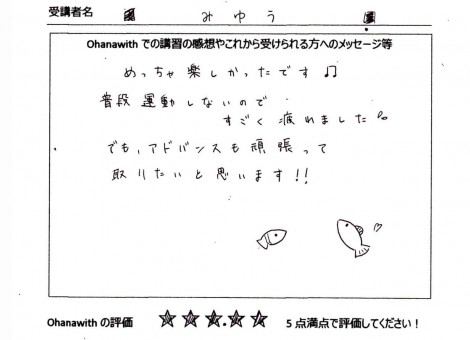 受講者名 みゆう
Ohanawithでの講習の感想やこれから受けられる方へのメッセージ等
めっちゃ楽しかったです♫
普段運動しないので
すごく疲れました。
でも、アドバンスも頑張って
取りたいと思います!!
Ohanawithの評価 ★★★★★ 5点満点で評価してください!